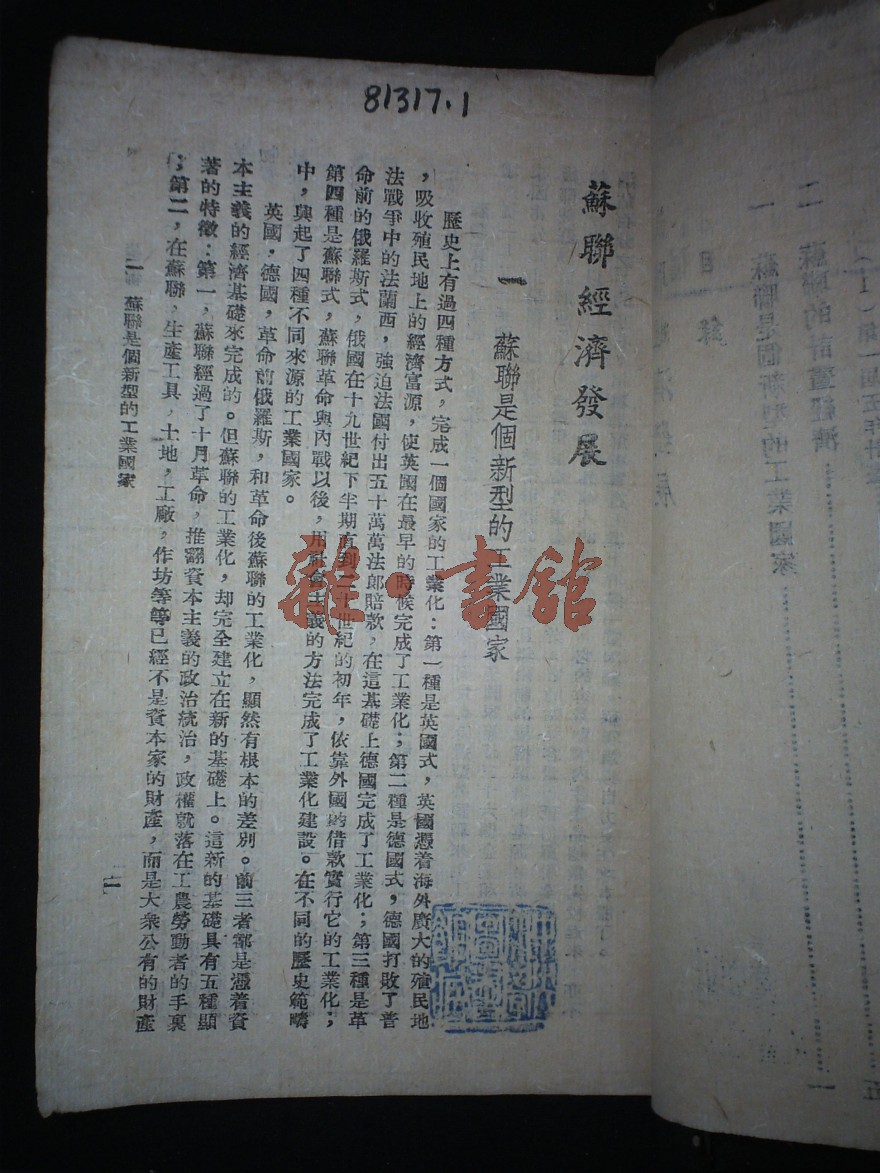 81317.1
蘇聯經濟發展
一 蘇聯是個新型的工業國家
歷史上有過四種方式，完成一個國家的工業化：第一種是英國式，英國憑着海外廣大的殖民地
，吸收殖民地上的經濟富源，使英國在最早的時候完成了工業化；第二種是德國式，德國打敗了普
法戰爭中的法蘭西，強迫法國付出五十萬萬法郎賠款，在這基礎上德國完成了工業化；第三種是革
命前的俄羅斯式，俄國在十九世紀下半期直到二十世紀的初年，依靠外國的借款實行它的工業化；
第四種是蘇聯式，蘇聯革命與內戰以後，用社會主義的方法完成了工業化建設。在不同的歷史範疇
中，興起了四種不同來源的工業國家。
英國，德國，革命前俄羅斯，和革命後蘇聯的工業化，顯然有根本的差別。前三者都是憑着資
本主義的經濟基礎來完成的。但蘇聯的工業化，却完全建立在新的基礎上。這新的基礎具有五種顯
著的特徵：第一，蘇聯經過了十月革命，推翻資本主義的政治統治，政權就落在工農勞動者的手裏
；第二，在蘇聯，生產工具，土地，工廠，作坊等等已經不是資本家的財產，而是大衆公有的財產
一 蘇聯是個新型的工業國家
一
雜·書館
目錄
一 蘇聯是個新型的工業國家
一
二 蘇聯的計劃經濟
五